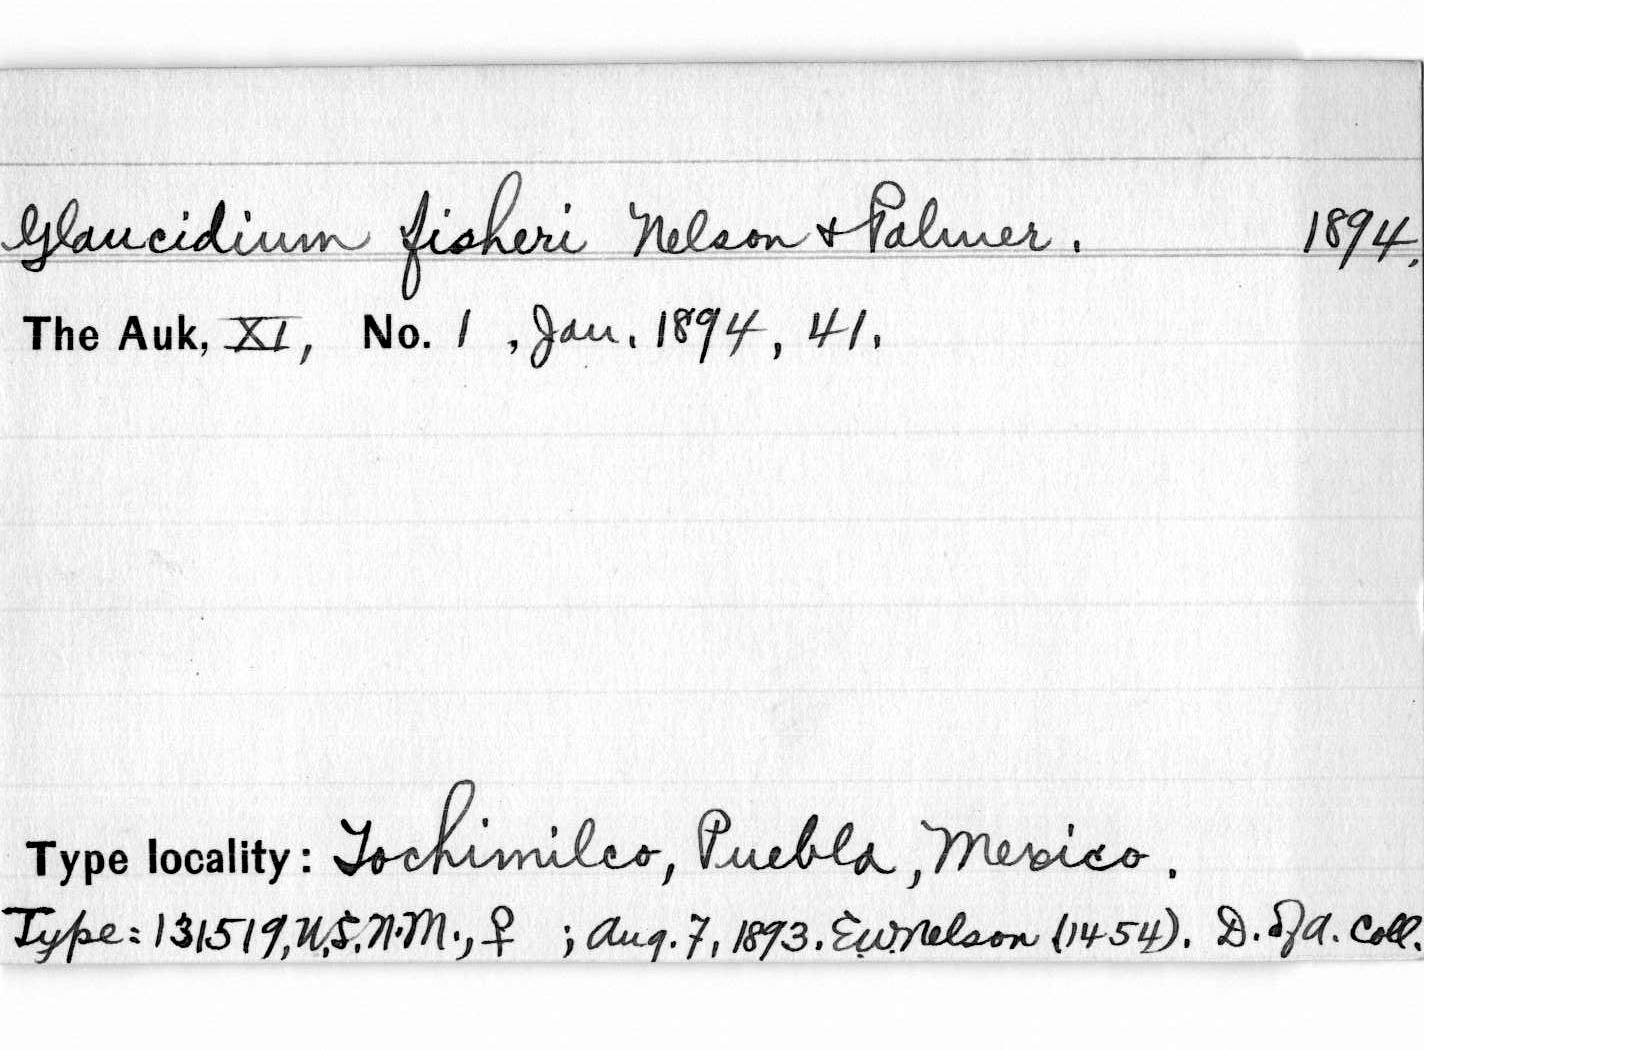 Glaucidium fisheri Nelson & Palmer. 1894.
The Auk, XI, No. 1, Jan. 1894, 41.
Type locality: Tochimilco, Puebla, Mexico.
Type: 131519, U.S.N.M., ♀ ; Aug. 7, 1893. E.W. Nelson (1454). D. of A. Coll.